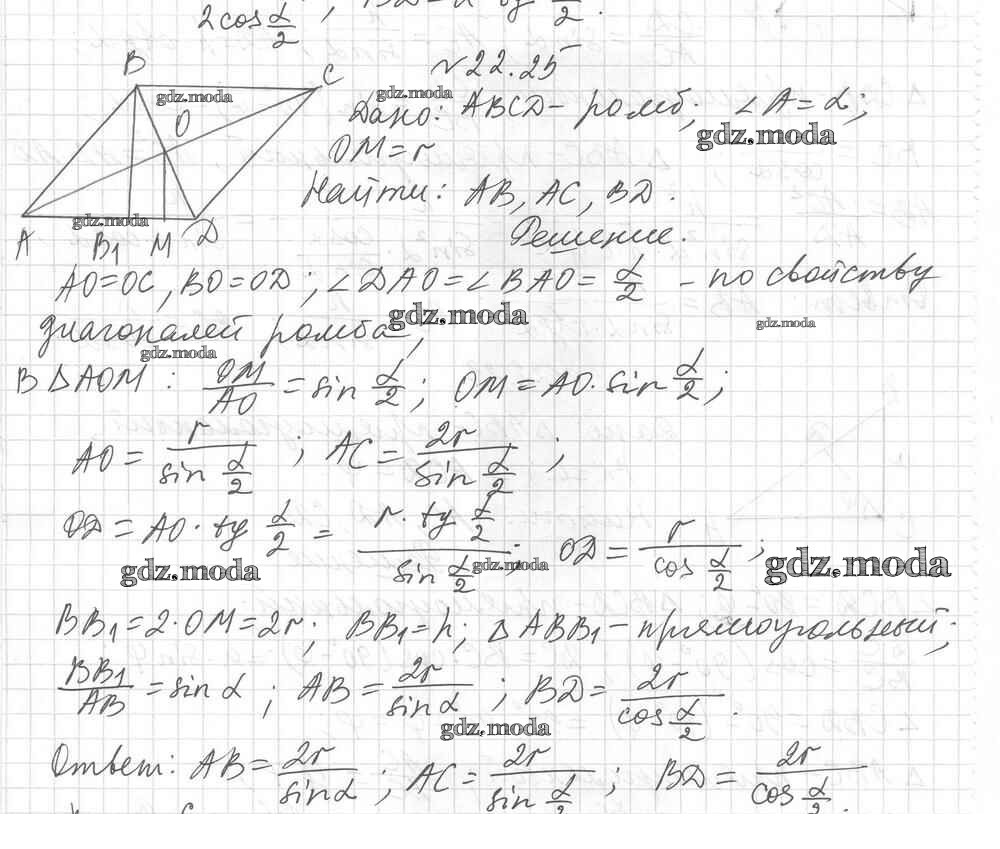 2cos α/2
№22.25
B
C
O
A
B₁
M
D
gdz.moda
gdz.moda
Дано: ABCD – ромб; ∠A = α;
gdz.moda
OM = r
Найти: AB, AC, BD.
gdz.moda
Решение.
AO = OC, BO = OD; ∠DAO = ∠BAO = α/2 – по свойству
gdz.moda
gdz.moda
диагоналей ромба;
gdz.moda
В ΔAOM: OM/AO = sin α/2; OM = AO · sin α/2;
AO = r/(sin α/2); AC = 2r/(sin α/2);
OD = AO · tg α/2 = (r · tg α/2)/(sin α/2); OD = r/(cos α/2);
gdz.moda
gdz.moda
gdz.moda
BB₁ = 2 · OM = 2r; BB₁ = h; Δ ABB₁ – прямоугольный;
BB₁/AB = sin α; AB = 2r/sin α; BD = 2r/(cos α/2).
gdz.moda
Ответ: AB = 2r/sin α; AC = 2r/(sin α/2); BD = 2r/(cos α/2).